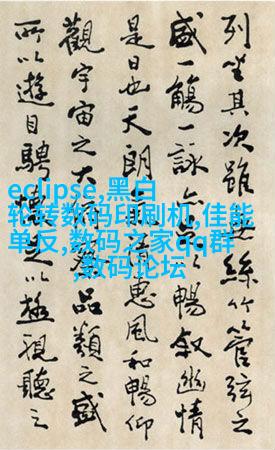 列坐其次雖無絲竹管弦之
盛一觴一詠亦足以暢敘幽情
是日也天朗惠風和暢仰
觀宇宙之大品類之盛
所以遊目騁以極視聽之
eclipse,黑白
轮转数码印刷机,佳能
单反,数码之家qq群
,数码论坛